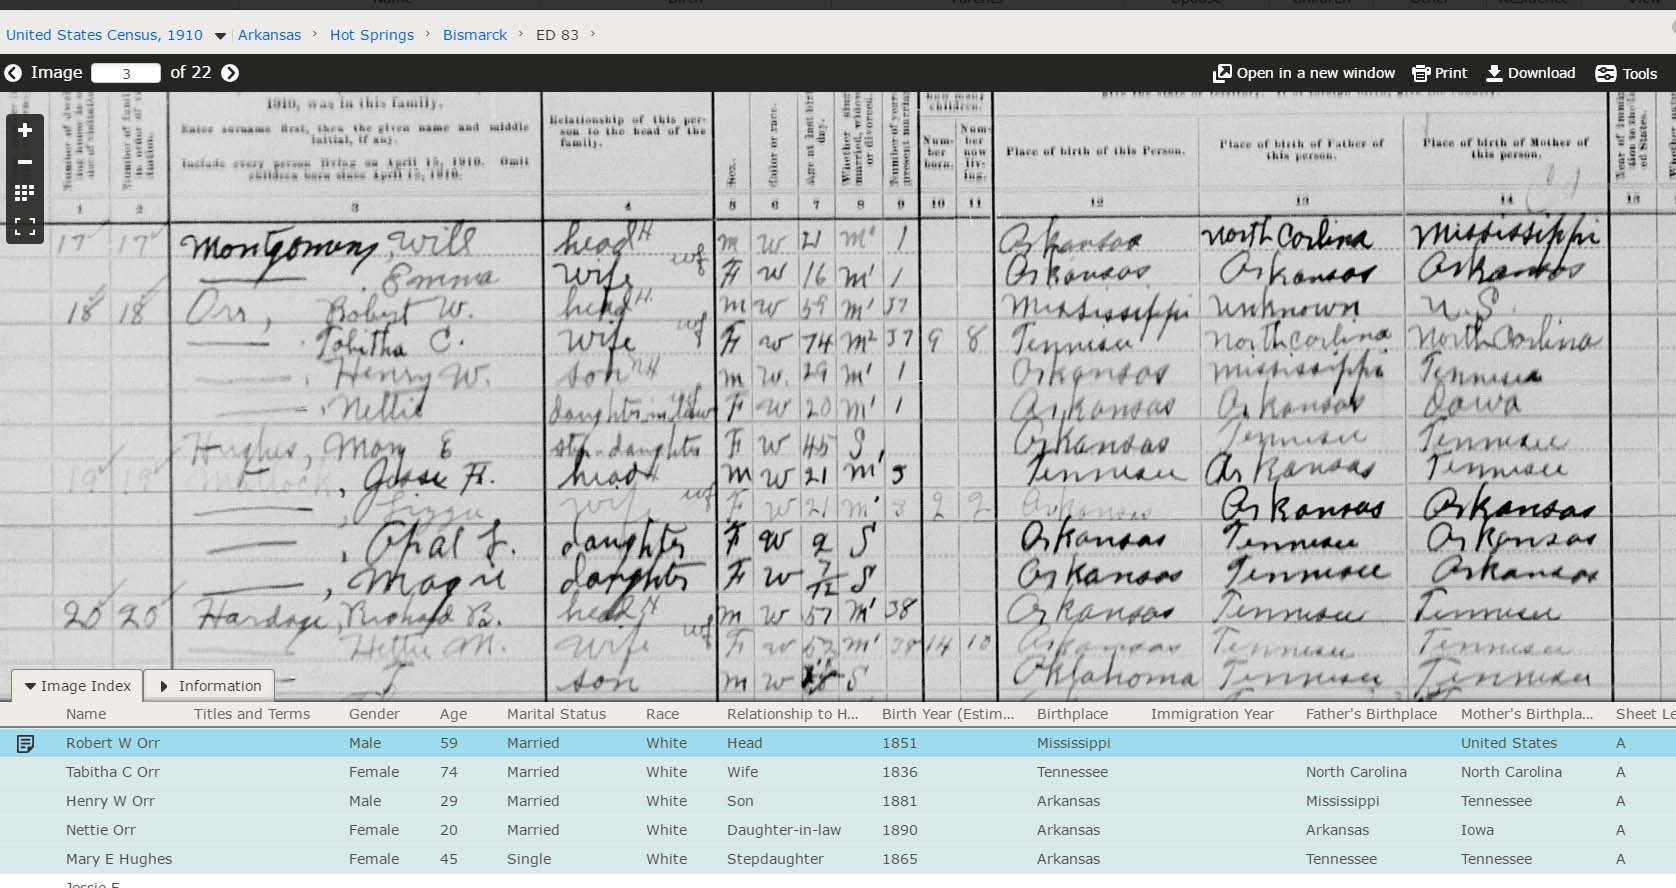 Name Birth Parents Spouse Children Other Residence View
United States Census, 1910 Arkansas › Hot Springs › Bismarck › ED 83 ›
Image 3 of 22 Open in a new window Print Download Tools
1910, was in this family.
Enter surname first, then the given name and middle
initial, if any.
Include every person living on April 15, 1910. Omit
children born since April 15, 1910.
Relationship of this per-
son to the head of the
family.
Sex.
Color or race.
Age at last birth
day.
Whether single,
married, widowed,
or divorced.
Number of years
present marriage
children.
Num-
ber
born.
Num-
ber
now
liv-
ing.
Place of birth of this Person.
Place of birth of Father of
this person.
Place of birth of Mother of
this person.
1 2 3 4 5 6 7 8 9 10 11 12 13 14 15
17 17 Montgomery, Will head H m w 21 m' 1 Arkansas North Corlina Mississippi
Emma wife wf F w 16 m' 1 Arkansas Arkansas Arkansas
18 18 Orr, Robert W. head H m w 59 m' 37 Mississippi Unknown U.S.
Tabitha C. wife wf F w 74 m2 37 9 8 Tennessee North Corlina North Corlina
Henry W. son m w 29 m' 1 Arkansas Mississippi Tennessee
Nettie daughter in law F w 20 m' 1 Arkansas Arkansas Iowa
Hughes, Mary E step-daughter F w 45 S Arkansas Tennessee Tennessee
19 19 , Jessie F. head H m w 21 m' 3 Tennessee Arkansas Tennessee
, Lizzie wife wf F w 21 m' 3 2 2 Arkansas Arkansas Arkansas
, Opal L. daughter F w 2 S Arkansas Tennessee Arkansas
, Magie daughter F w 7/12 S Arkansas Tennessee Arkansas
20 20 Hardage, Richard B. head H m w 57 m' 38 Arkansas Tennessee Tennessee
Hettie M. wife wf F w 52 m' 38 14 10 Arkansas Tennessee Tennessee
son m w S Oklahoma Tennessee Tennessee
Image Index Information
Name Titles and Terms Gender Age Marital Status Race Relationship to H... Birth Year (Estim... Birthplace Immigration Year Father's Birthplace Mother's Birthpla... Sheet Le
Robert W Orr Male 59 Married White Head 1851 Mississippi United States A
Tabitha C Orr Female 74 Married White Wife 1836 Tennessee North Carolina North Carolina A
Henry W Orr Male 29 Married White Son 1881 Arkansas Mississippi Tennessee A
Nettie Orr Female 20 Married White Daughter-in-law 1890 Arkansas Arkansas Iowa A
Mary E Hughes Female 45 Single White Stepdaughter 1865 Arkansas Tennessee Tennessee A
Jessie F